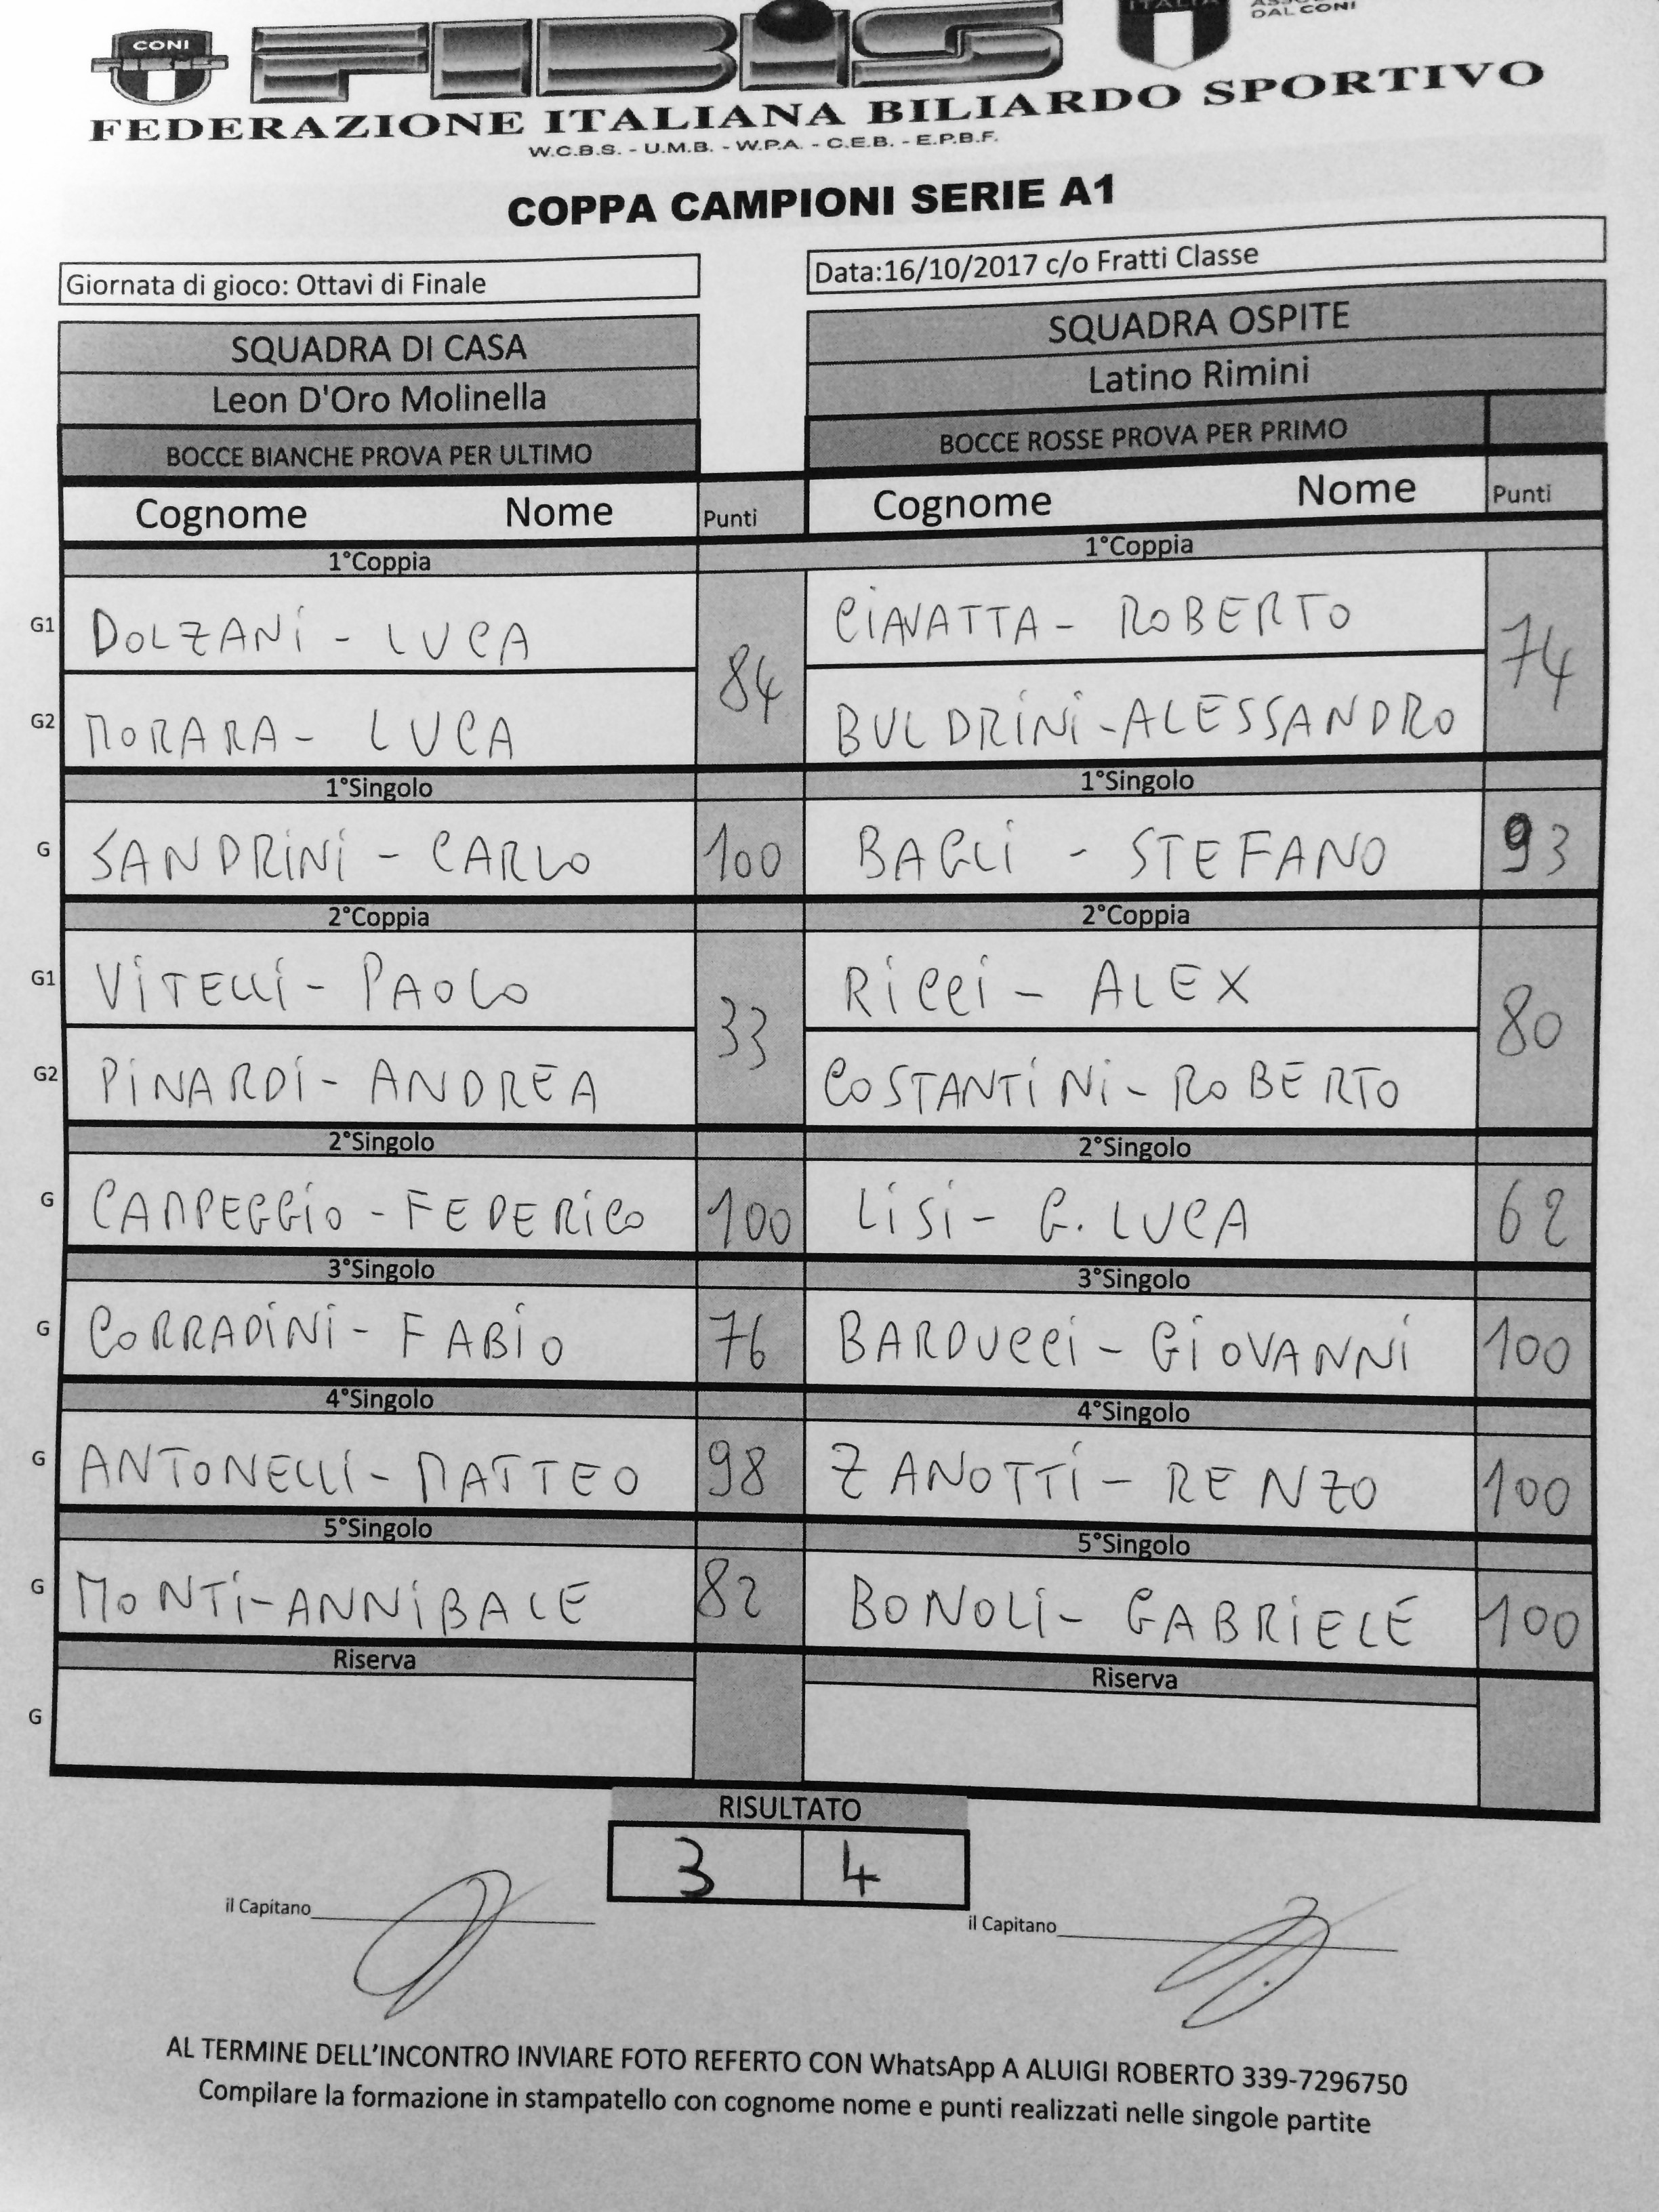 CONI
FIBiS
ITALIA
DAL CONI
FEDERAZIONE ITALIANA BILIARDO SPORTIVO
W.C.B.S. - U.M.B. - W.P.A. - C.E.B. - E.P.B.F.
COPPA CAMPIONI SERIE A1
Giornata di gioco: Ottavi di Finale
Data:16/10/2017 c/o Fratti Classe
SQUADRA DI CASA
SQUADRA OSPITE
Leon D'Oro Molinella
Latino Rimini
BOCCE BIANCHE PROVA PER ULTIMO
BOCCE ROSSE PROVA PER PRIMO
Cognome Nome Punti Cognome Nome Punti
1°Coppia 1°Coppia
G1 DOLZANi - LUCA 84 CiAVATTA - ROBERTO 74
G2 MORARA - LUCA BULDRiNi - ALESSANDRO
1°Singolo 1°Singolo
G SANDRiNi - CARLO 100 BAGLi - STEFANO 93
2°Coppia 2°Coppia
G1 ViTELLi - PAOLO 33 RiCCi - ALEX 80
G2 PiNARDi - ANDREA COSTANTiNi - ROBERTO
2°Singolo 2°Singolo
G CAMPEGGiO - FEDERiCO 100 LiSi - G. LUCA 62
3°Singolo 3°Singolo
G CORRADiNi - FABiO 76 BARDUCCi - GiOVANNi 100
4°Singolo 4°Singolo
G ANTONELLi - MATTEO 98 ZANOTTi - RENZO 100
5°Singolo 5°Singolo
G MONTi - ANNiBALE 82 BONOLi - GABRiELE 100
Riserva Riserva
G
RISULTATO
3 4
il Capitano
il Capitano
AL TERMINE DELL'INCONTRO INVIARE FOTO REFERTO CON WhatsApp A ALUIGI ROBERTO 339-7296750
Compilare la formazione in stampatello con cognome nome e punti realizzati nelle singole partite